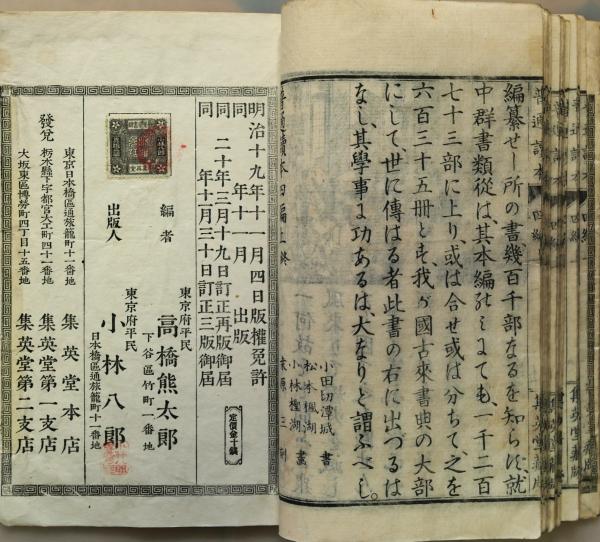 編纂せ 所の書、幾百千部なるを知らず、就
中群書類從は、其本編のみにても、一千二百
七十三部に上り、或は合せ或は分ちて、之を
六百三十五册とす、我が國古來書典の大部
にして、世に傳はる者此書の右に出づるは
なし、其學事に功あるは、大なりと謂ふべし。
小田切潭城 書
松本楓湖
小林 湖 畫
三 刻
普通讀本四編上終
明治十九年十一月四日版權免許
同 年十一月 出版
同 二十年三月十九日訂正再版御屆
同 年十月三十日訂正三版御屆
定價金十錢
編者
東京府平民
高橋熊太郎
下谷區竹町一番地
出版人
東京府平民
小林八郎
日本橋區通旅籠町十一番地
發兌
東京日本橋區通旅籠町十一番地
集英堂本店
栃木縣下宇都宮大工町四十一番地
集英堂第一支店
大坂東區博勞町四丁目十五番地
集英堂第二支店